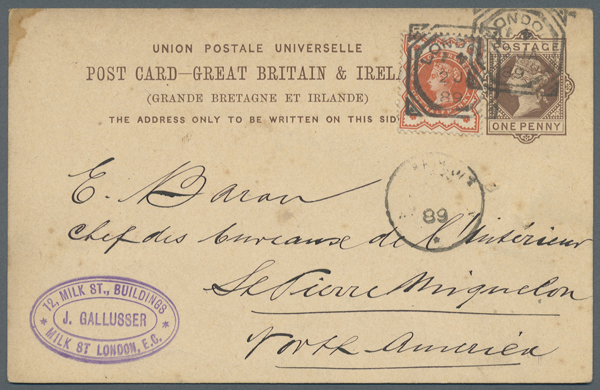 UNION POSTALE UNIVERSELLE
POST CARD—GREAT BRITAIN & IREL
(GRANDE BRETAGNE ET IRLANDE)
THE ADDRESS ONLY TO BE WRITTEN ON THIS SID
LONDON
89
LONDO
89
POSTAGE
ONE PENNY
89
E. Baron
chef des bureaux de l'Intérieur
St Pierre Miquelon
North America
12, MILK ST., BUILDINGS
J. GALLUSSER
MILK ST LONDON, E.C.